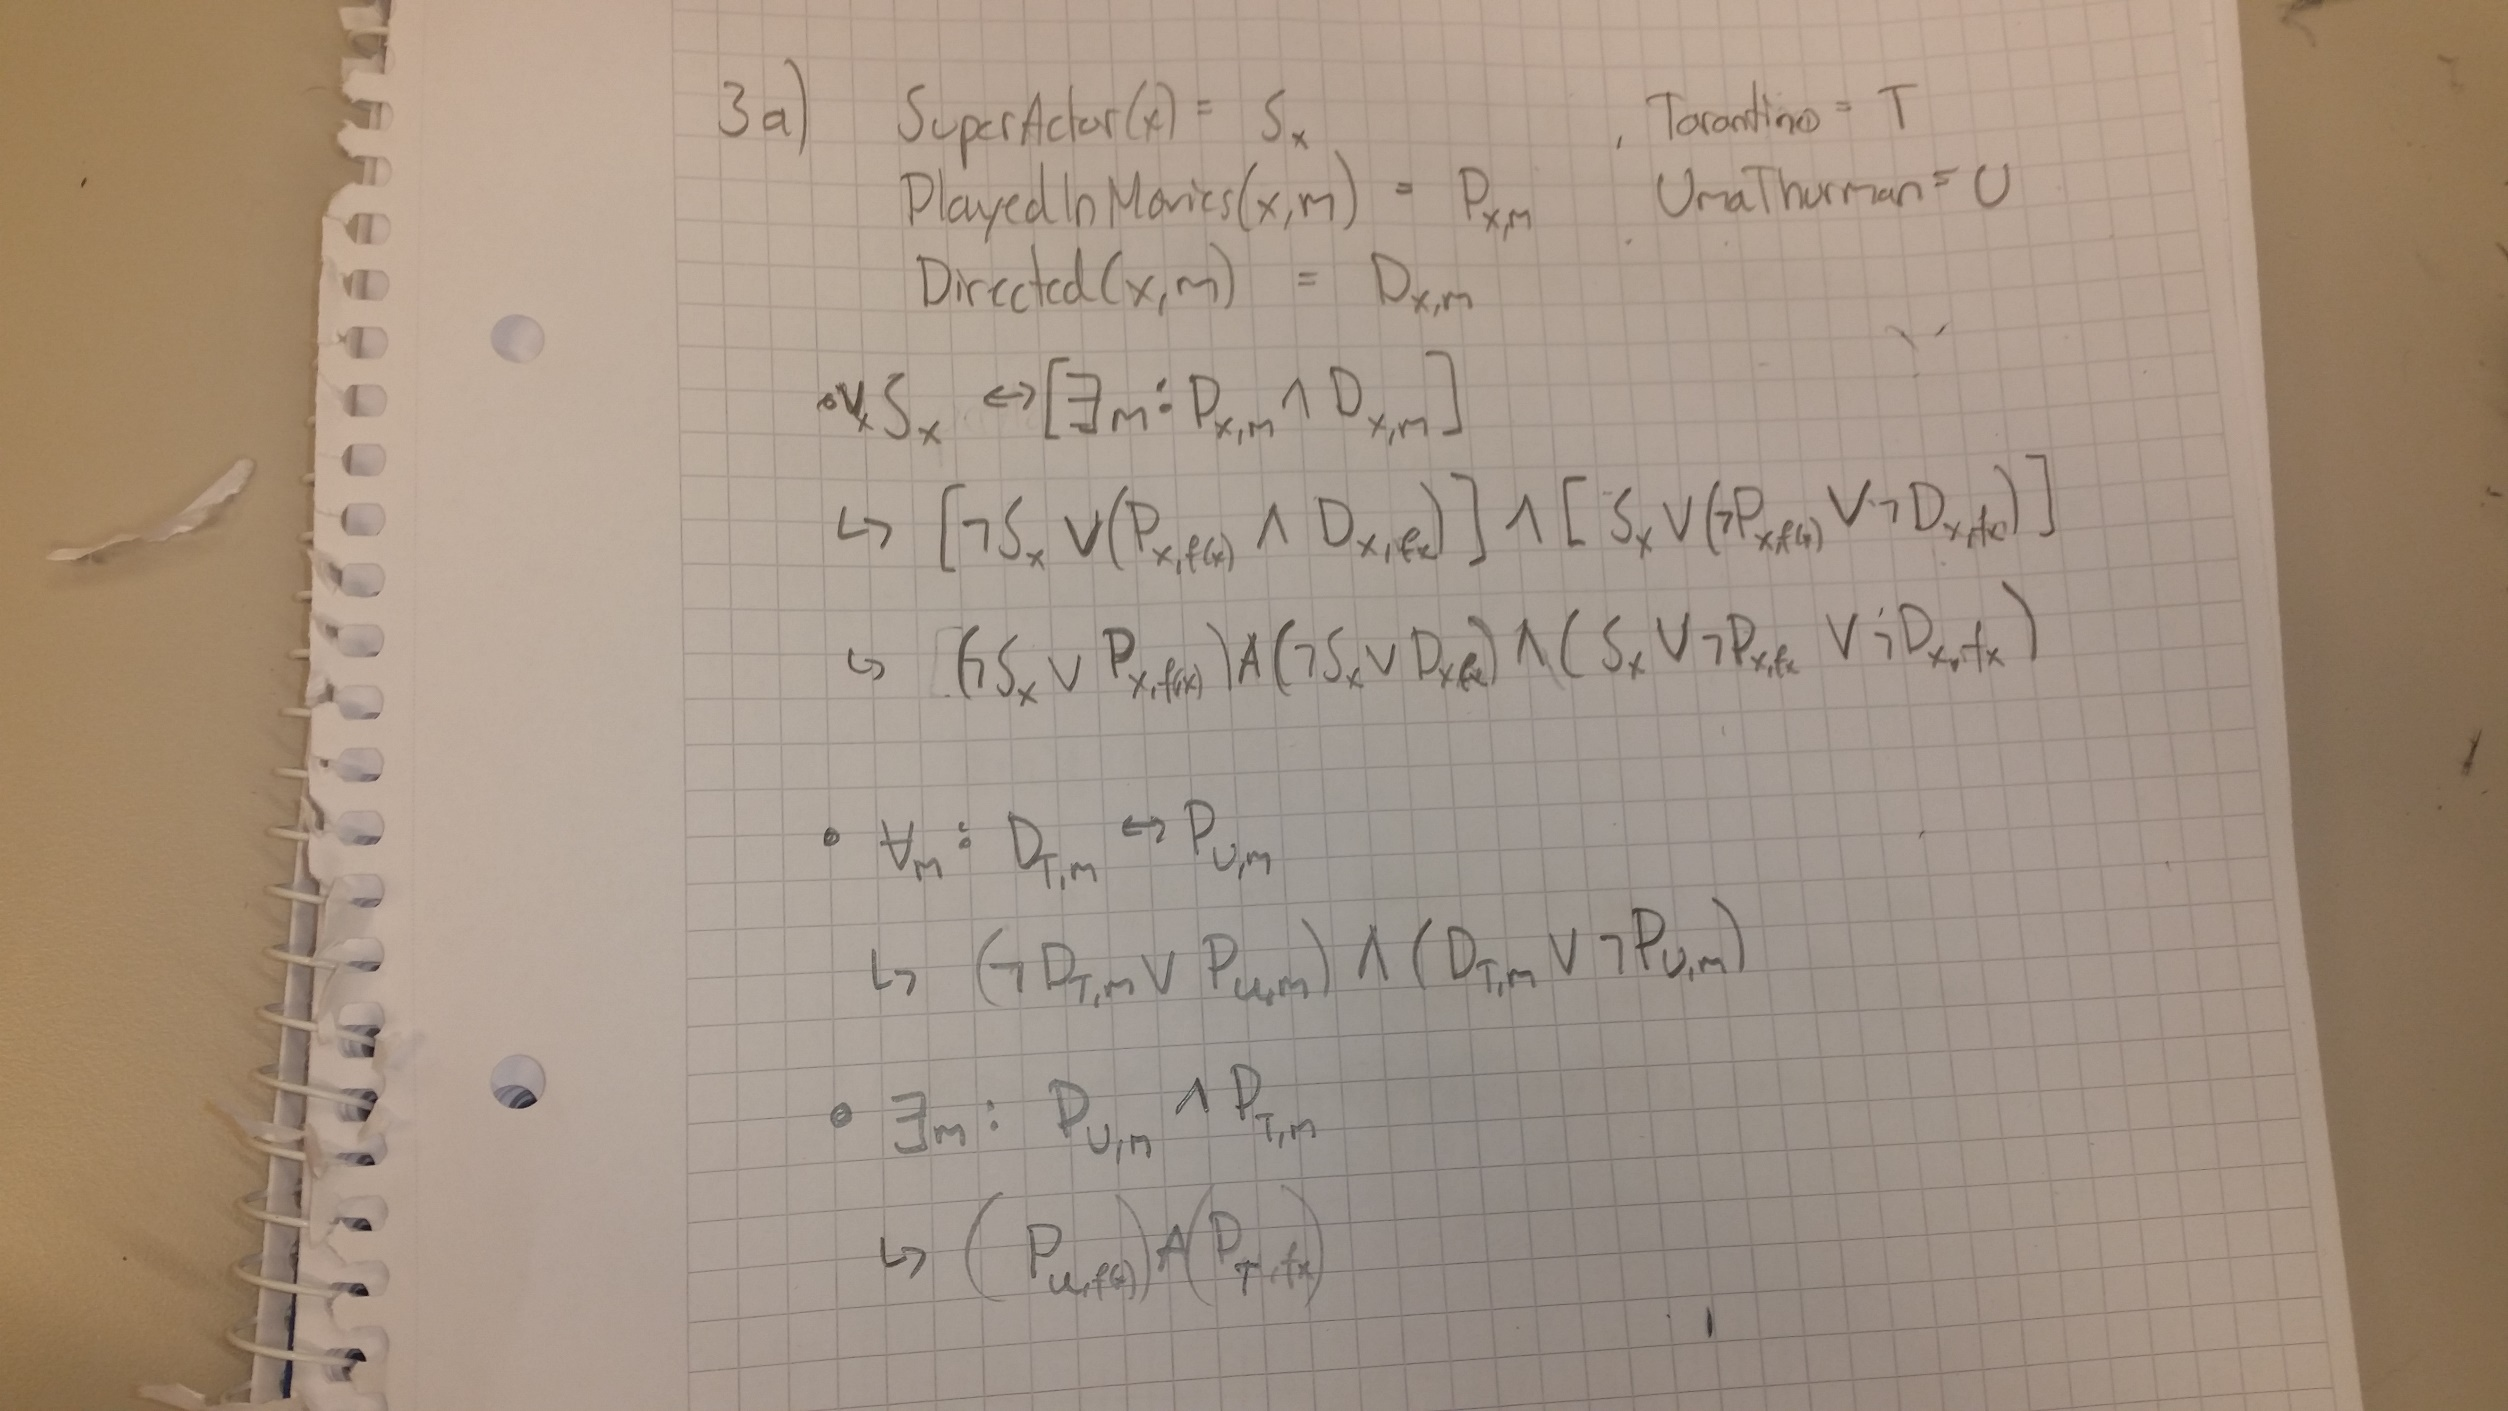 3a) SuperActor(x) = Sx , Tarantino = T
PlayedInMovies(x,m) = Px,m UmaThurman = U
Directed(x,m) = Dx,m
• ∀x Sx ↔ [∃m: Px,m ∧ Dx,m]
↳ [¬Sx ∨ (Px,f(x) ∧ Dx,fx)] ∧ [Sx ∨ (¬Px,f(x) ∨ ¬Dx,fx)]
↳ (¬Sx ∨ Px,f(x)) ∧ (¬Sx ∨ Dx,fx) ∧ (Sx ∨ ¬Px,fx ∨ ¬Dx,fx)
• ∀m: DT,m ↔ PU,m
↳ (¬DT,m ∨ PU,m) ∧ (DT,m ∨ ¬PU,m)
• ∃m: PU,m ∧ PT,m
↳ (PU,f(x)) ∧ (PT,fx)